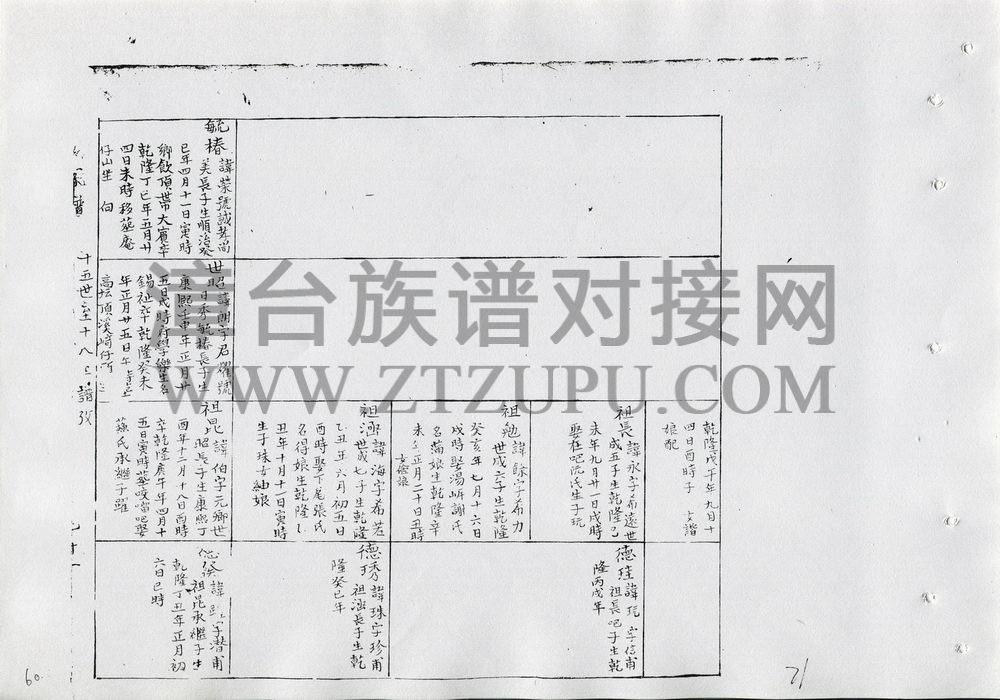 乾隆戊午年九月十
四日酉時子諧
娘配
祖長諱永字希遠世
成五子生乾隆乙
未年九月廿一日戌時
娶在吧阮氏生子玩
祖勉諱餘字希力
世成六子生乾隆
癸亥年七月十六日
戌時娶湯嶼謝氏
名蒲娘生乾隆辛
未年正月二十日丑時
祖涵諱海字希若
世成七子生乾隆
乙丑年六月初五日
酉時娶下尾張氏
名得娘生乾隆
丑年十月十一日寅時
生子珠女紬娘
德珪諱玩字信甫
祖長吧子生乾
隆丙戌年
德琇諱珠字珍甫
祖涵長子生乾
隆癸巳年
毓椿諱榮號誠
美長子生順治癸
巳年四月十一日寅時
鄉飲頂帶大賓卒
乾隆丁巳年五月廿
四日未時移葬庵
仔山坐 向
世昭諱朗字君耀號
日秀毓椿長子生
康熙壬申年正月廿
五日戌時府學樂生名
錫祉卒乾隆癸未
年正月廿五日午時葬
高坛頂溪崎仔
祖昆諱伯字元卿世
昭長子生康熙丁
酉年十二月十八日酉時
卒乾隆庚午年四月十
五日寅時葬咬𠺕吧娶
蘇氏承繼子躍
諱 字潛甫
祖昆承繼子生
乾隆丁丑年正月初
六日巳時
十五世至十八世譜
60
71
寻台族谱对接网
WWW.ZTZUPU.COM